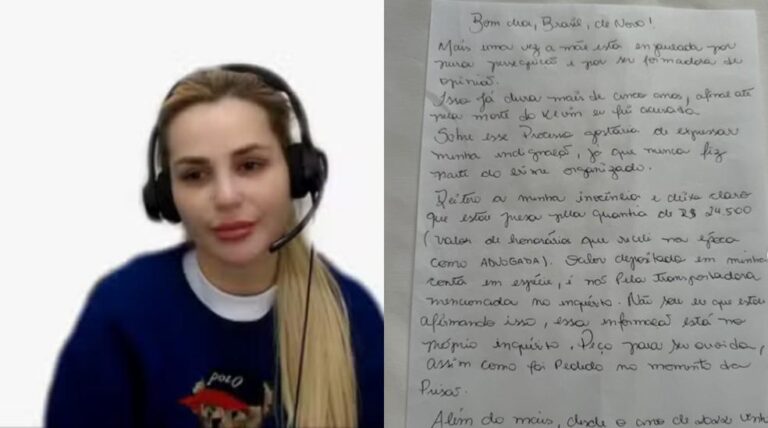 POLO
Bom dia, Brasil, de Novo!
Mais uma vez a mãe está enjaulada por
pura perseguição e por ser formadora de
opinião.
Isso já dura mais de cinco anos, afinal até
pela morte do Kevin eu fui acusada
Sobre esse Processo gostaria de expressar
minha indignação, já que nunca fiz
parte do crime organizado.
Reitero a minha inocência e deixo claro
que estou presa pela quantia de R$ 24.500
(valor de honorários que recebi na época
como ADVOGADA). Valor depositado em minha
conta em espécie, e não pela transportadora
mencionada no inquérito. Não sou eu que estou
afirmando isso, essa informação está no
próprio inquérito. Peço para ser ouvida,
assim como foi Pedido no momento da
Prisão.
Além do mais, desde o ano de